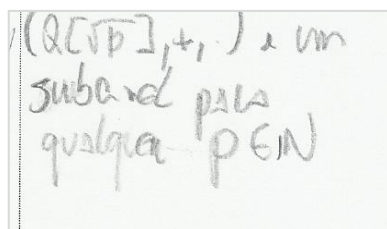 , (Q[√p], +, ·) é um
subanel para
qualquer p∈N